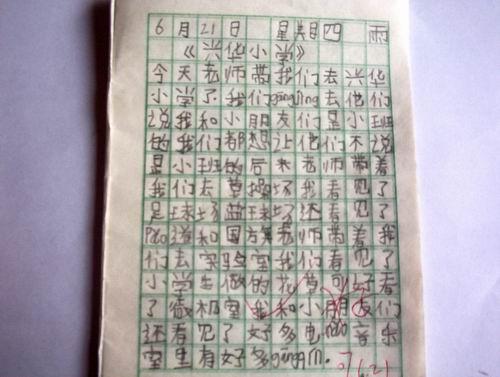 6月21日 星期四 雨
《兴华小学》
今天老师带我们去兴华
小学了.我们gāngjìng去他们
说我和小朋友们是小班
的我们都想让他们不说
是小班的后来老师带着
我们去操场我看见了
足球场蓝球场还看见了
Pǎo道和国旗老师带着我
们去实验室我们看见了
小学生做的花草可好看
了微机室我和小朋友们
还看见了好多电nǎo音乐
室里有好多gāngqín.